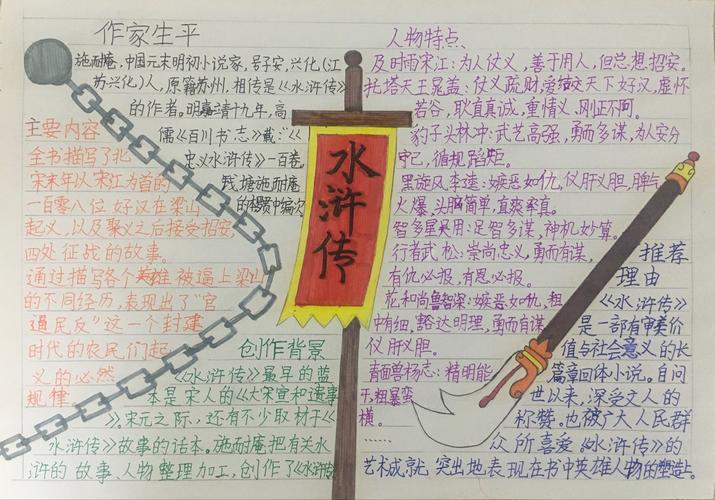 作家生平
施耐庵,中国元末明初小说家,号子安,兴化(江
苏兴化)人,原籍苏州,相传是《水浒传》
的作者。明嘉靖十九年,高
儒《百川书志》载:《
忠义水浒传》一百卷
钱塘施耐庵
的
编次
主要内容
全书描写了北
宋末年以宋江为首的
一百零八位好汉在梁山
起义,以及聚义之后接受招安
四处征战的故事。
通过描写各个英雄被逼上梁山
的不同经历,表现出了“官
逼民反”这一个封建
时代的农民们起
义的必然
规律。
创作背景
《水浒传》最早的蓝
本是宋人的《大宋宣和遗事
》。宋元之际,还有不少取材于《
水浒传》故事的话本。施耐庵把有关水
浒的故事、人物整理加工,创作了《水浒传
水浒传
人物特点、
及时雨宋江:为人仗义,善于用人,但总想招安。
托塔天王晁盖:仗义疏财,爱结交天下好汉,虚怀
若谷,耿直真诚,重情义,刚正不阿。
豹子头林冲:武艺高强,勇而多谋,为人安分
守己,循规蹈矩。
黑旋风李逵:嫉恶如仇,仪肝义胆,脾气
火爆,头脑简单,直爽率真。
智多星吴用:足智多谋,神机妙算。
行者武松:崇尚忠义,勇而有谋,
有仇必报,有恩必报。
和尚鲁智深:嫉恶如仇,粗
中有细,豁达明理,勇而有谋
仪肝义胆。
青面兽杨志:精明能
干,粗暴蛮
横。
推荐
理由
《水浒传》
是一部有审美价
值与社会意义的长
篇章回体小说。自问
世以来,深受文人的
称赞。也被广大人民群
众所喜爱。《水浒传》的
艺术成就,突出地表现在书中英雄人物的塑造上